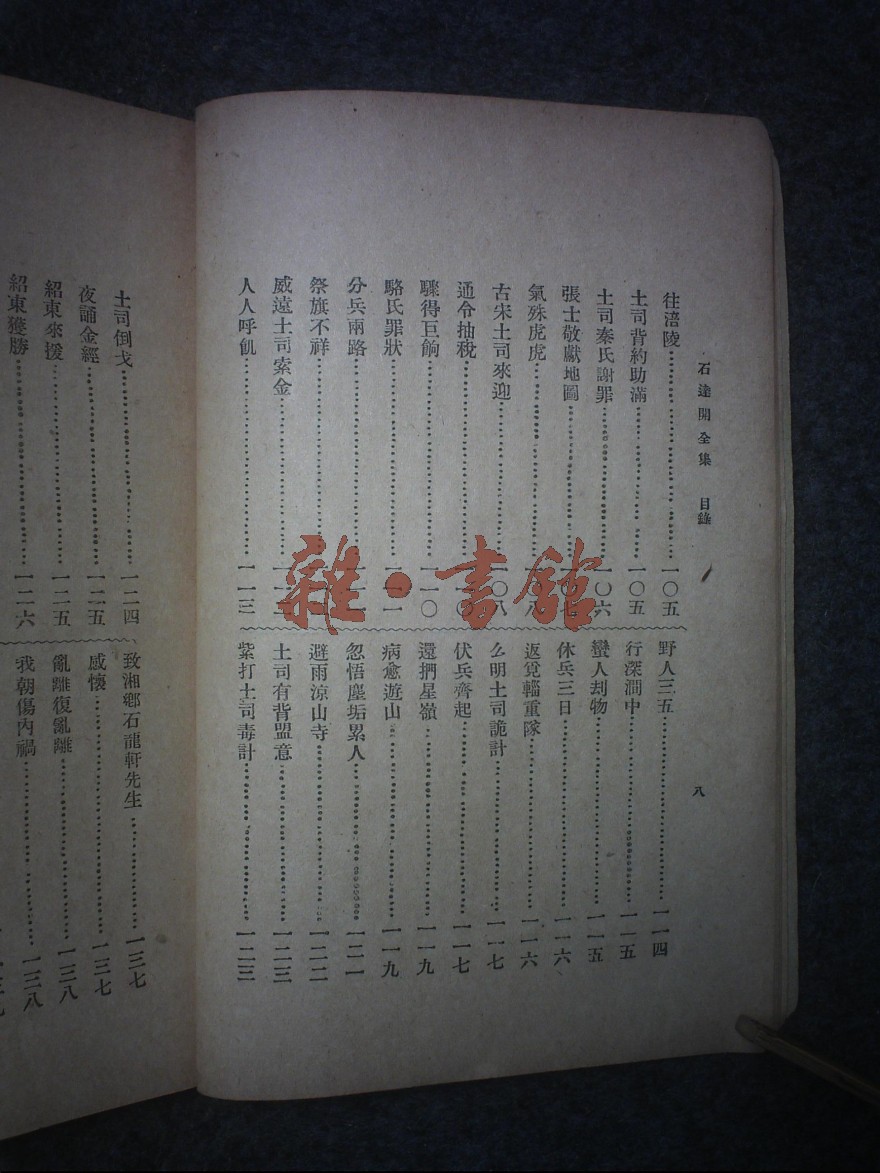 石達開全集 目錄 八
往涪陵……一〇五
土司背約助滿……一〇五
土司秦氏謝罪……一〇六
張士敬獻地圖……
氣殊虎虎……
古宋土司來迎……一〇八
通令抽稅……
驟得巨餉……一一〇
駱氏罪狀……一一一
分兵兩路……
祭旗不祥……
威遠土司索金……
人人呼飢……一一三
野人三五……一一四
行深澗中……一一五
蠻人刦物……一一五
休兵三日……一一六
返覓輜重隊……一一六
么明土司詭計……一一七
伏兵齊起……一一七
還捫星嶺……一一九
病愈遊山……一一九
忽悟塵垢累人……一二一
避雨涼山寺……一二二
土司有背盟意……一二三
紫打土司毒計……一二三
土司倒戈……一二四
夜誦金經……一二五
紹東來援……一二五
紹東獲勝……一二六
致湘鄉石龍軒先生……一三七
感懷……一三七
亂離復亂離……一三八
我朝傷內禍……一三八
雜·書館